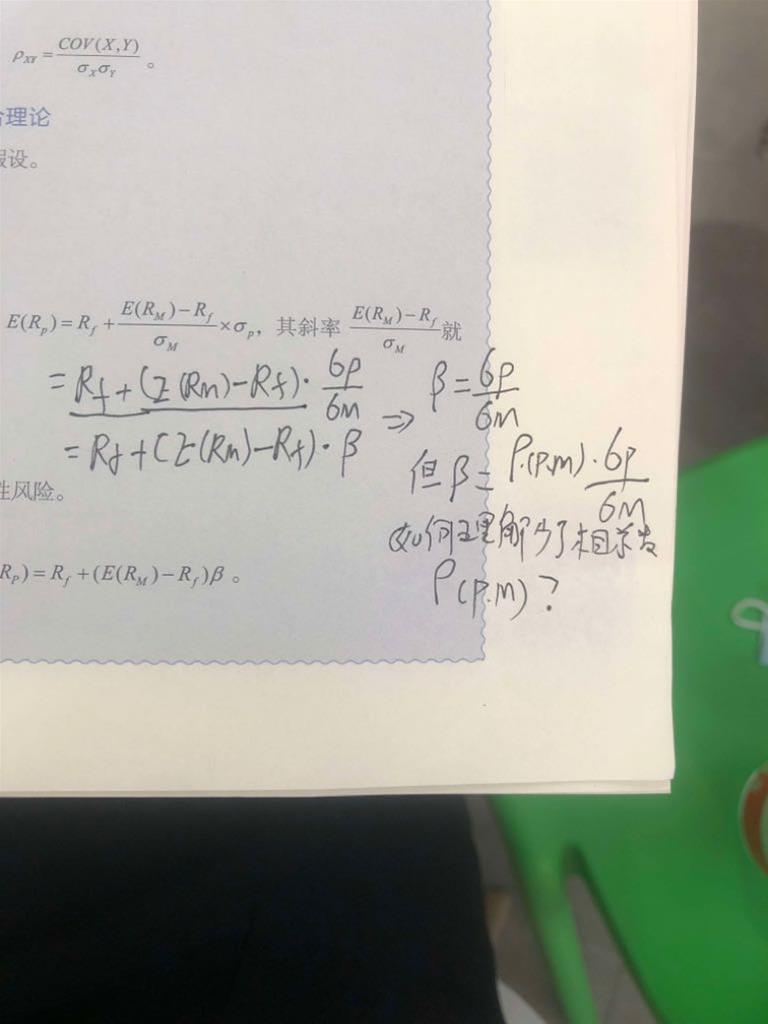 ρ_XY = COV(X,Y) / σ_Xσ_Y 。
合理论
假设。
E(R_P) = R_f + (E(R_M) − R_f) / σ_M × σ_p，其斜率 (E(R_M) − R_f) / σ_M 就
= Rf + (E(Rm) − Rf) · σp / σm ⇒ β = σp / σm
= Rf + (E(Rm) − Rf) · β
但 β = ρ(p.m) · σp / σM
性风险。
如何理解少了相关
R_P) = R_f + (E(R_M) − R_f)β 。
ρ(p.m)?